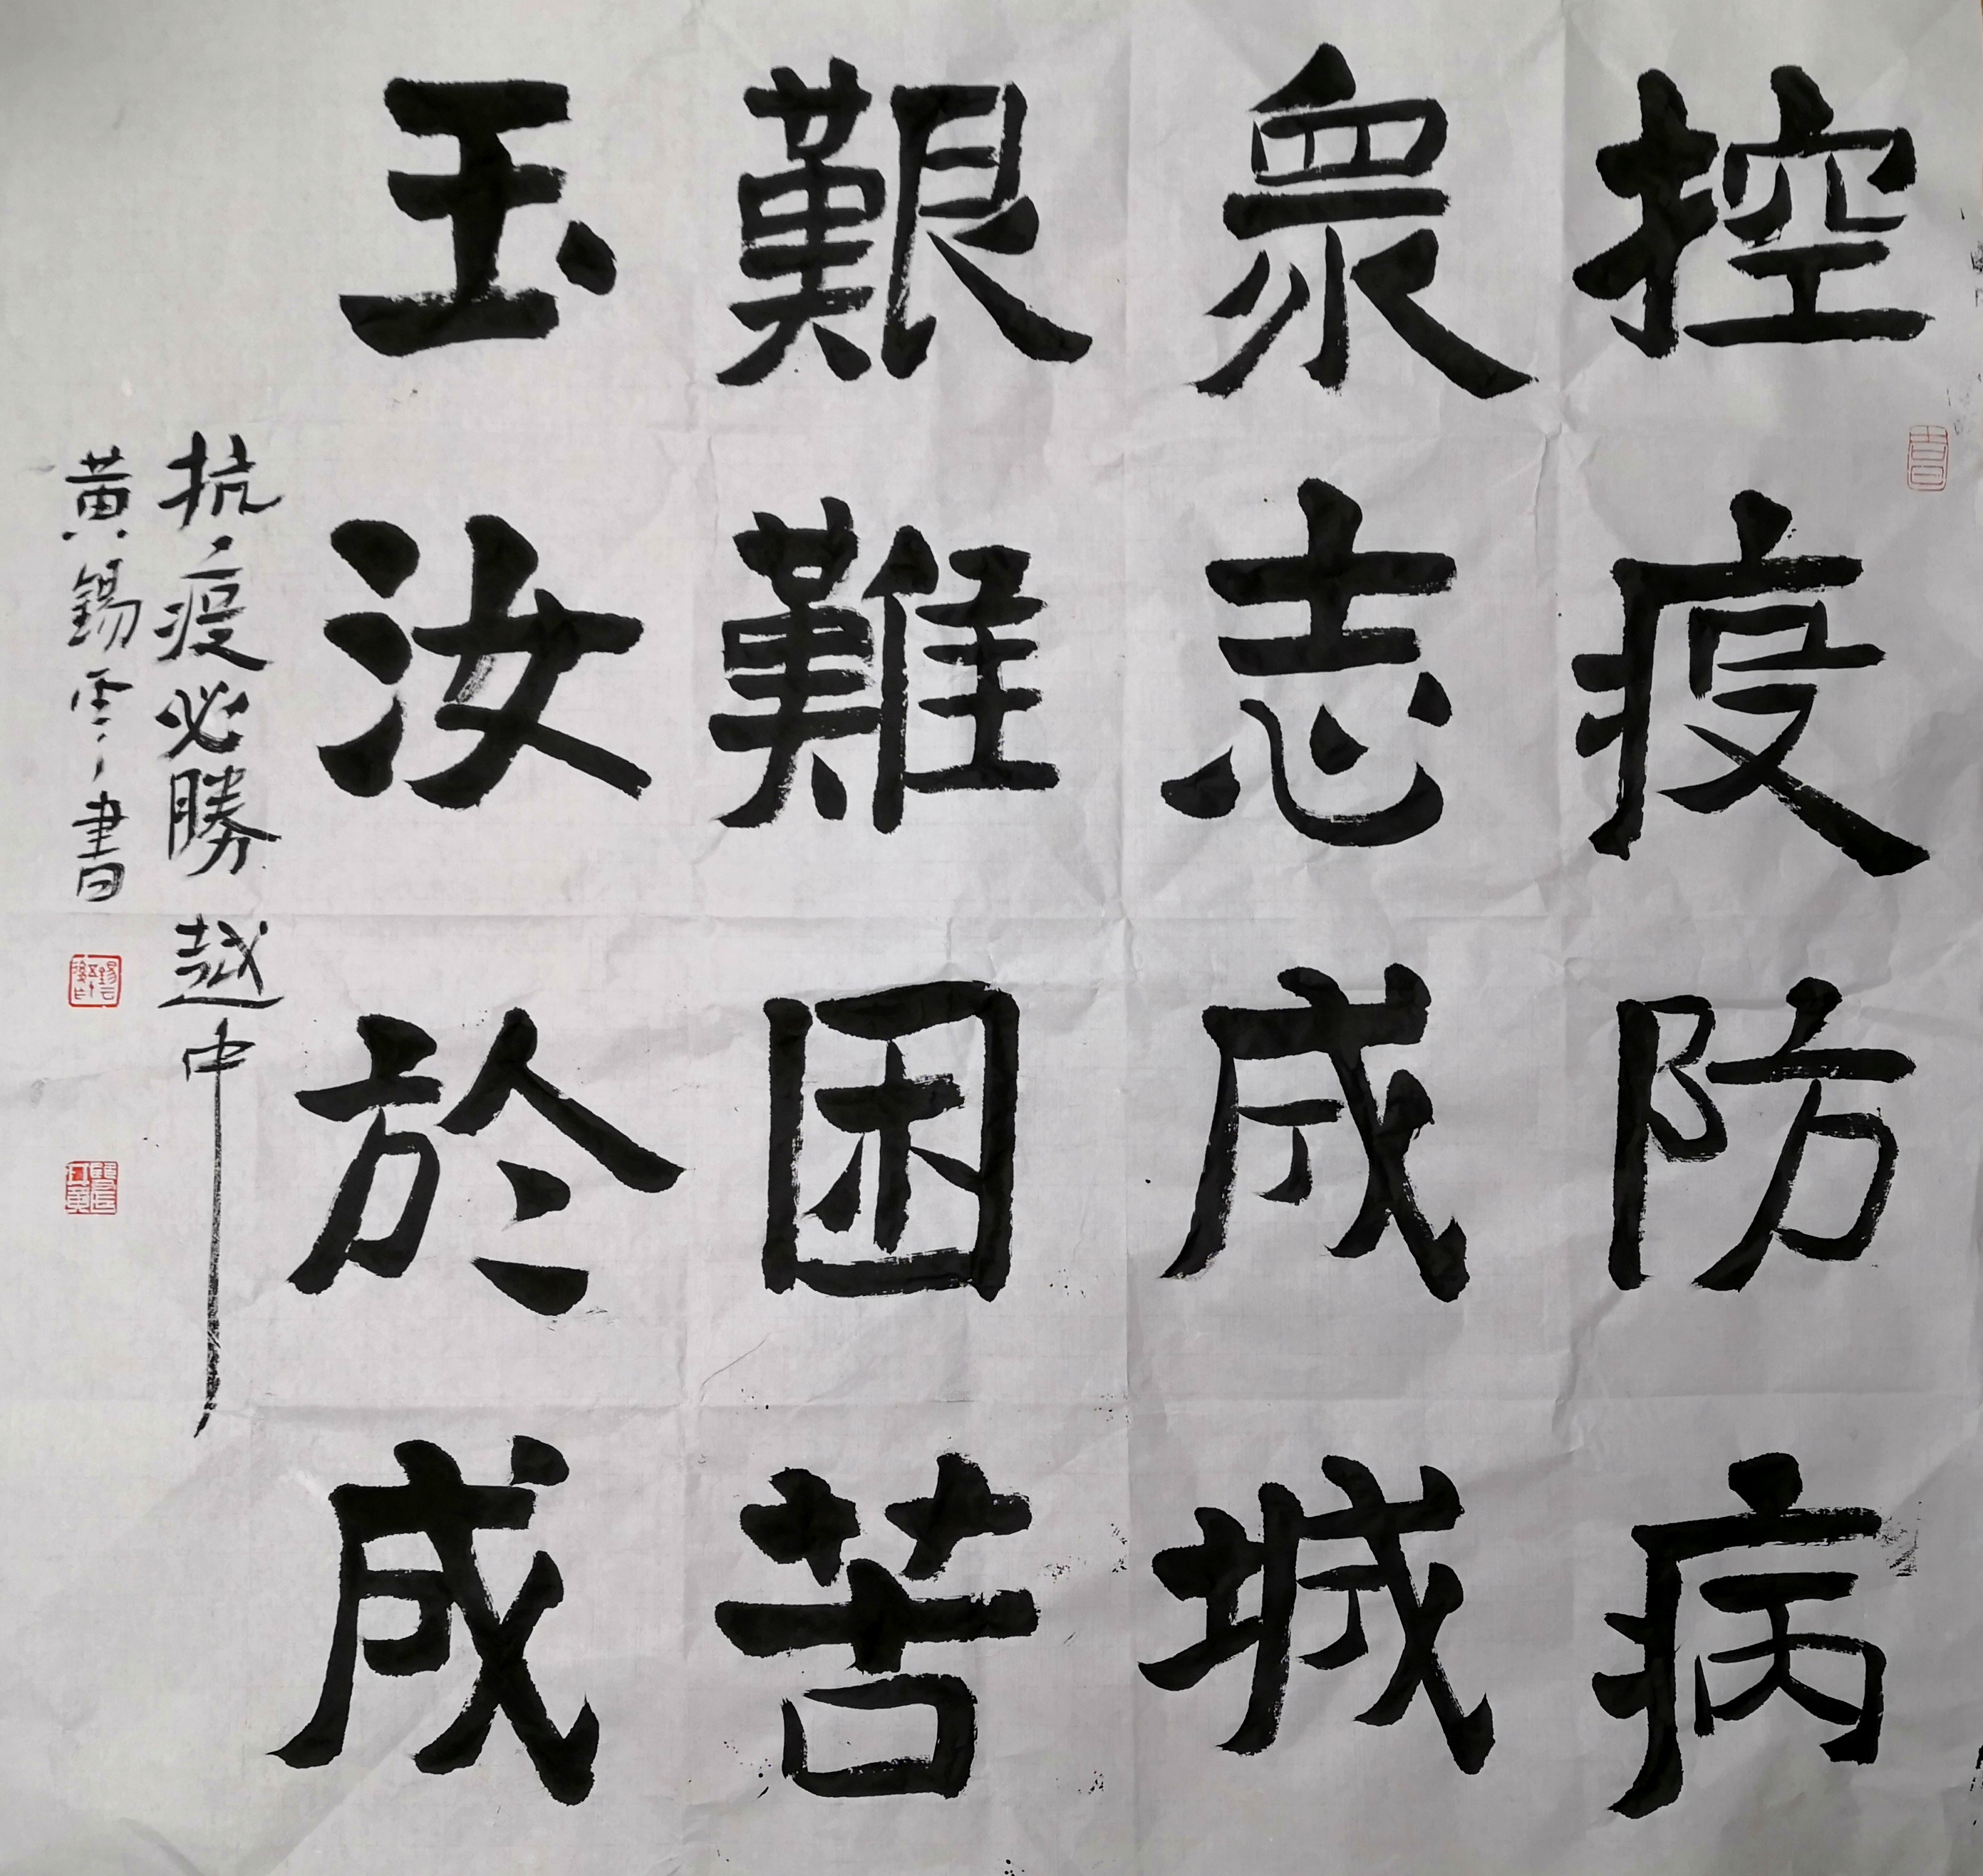 控疫防病
衆志成城
艱難困苦
玉汝於成
抗疫必勝越中
黄錫雲書
吉